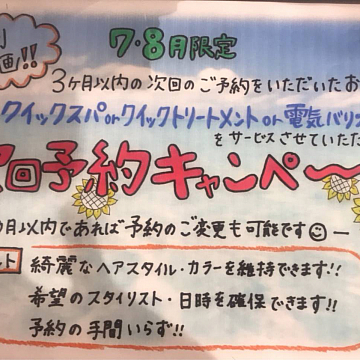 画!!
7・8月限定
3ヶ月以内の次回のご予約をいただいたお
クイックスパorクイックトリートメントor電気バリブ
をサービスさせていただ
回予約キャンペー
月以内であれば予約のご変更も可能です☺ー
ト
綺麗なヘアスタイル・カラーを維持できます!!
希望のスタイリスト・日時を確保できます!!
予約の手間いらず!!